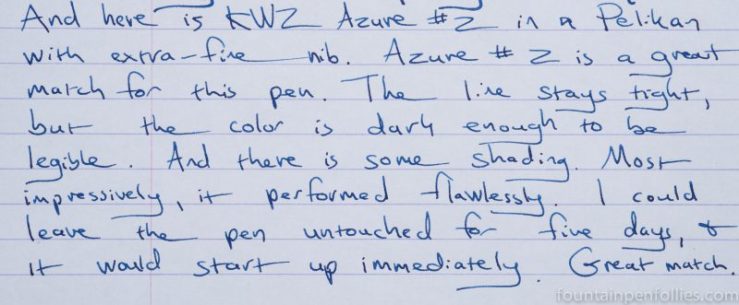 And here is KWZ Azure #2 in a Pelikan
with extra-fine nib. Azure # 2 is a great
match for this pen. The line stays tight,
but the color is dark enough to be
legible. And there is some shading. Most
impressively, it performed flawlessly. I could
leave the pen untouched for five days, &
it would start up immediately. Great match.
fountainpenfollies.com